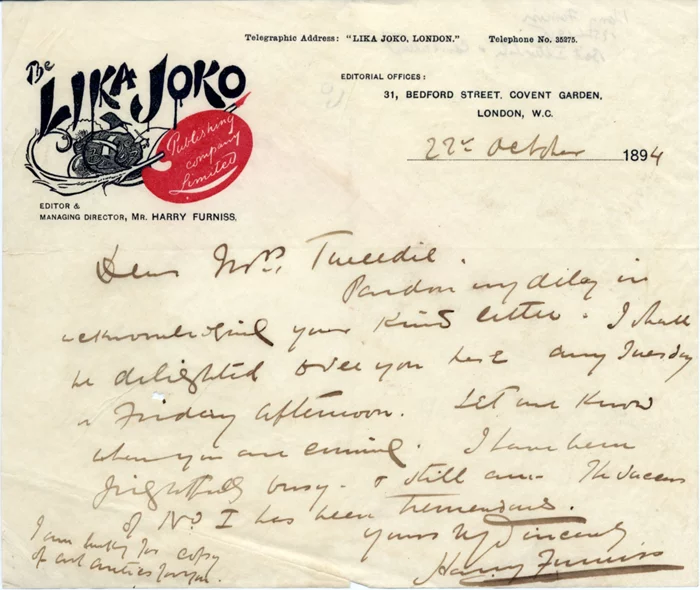 Telegraphic Address: "LIKA JOKO, LONDON."
Telephone No. 35275.
The
LIKA JOKO
Publishing
Company
Limited
EDITORIAL OFFICES:
31, BEDFORD STREET, COVENT GARDEN,
LONDON, W.C.
22 October 1894
EDITOR &
MANAGING DIRECTOR, MR. HARRY FURNISS.
Dear Mrs. Tweedie.
Pardon my delay in
acknowledging your kind letter. I shall
be delighted to see you here any Tuesday
or Friday afternoon. Let me know
when you are coming. I have been
frightfully busy - & still am - The success
of No. I has been tremendous.
yours Sincerely
Harry Furniss
copy